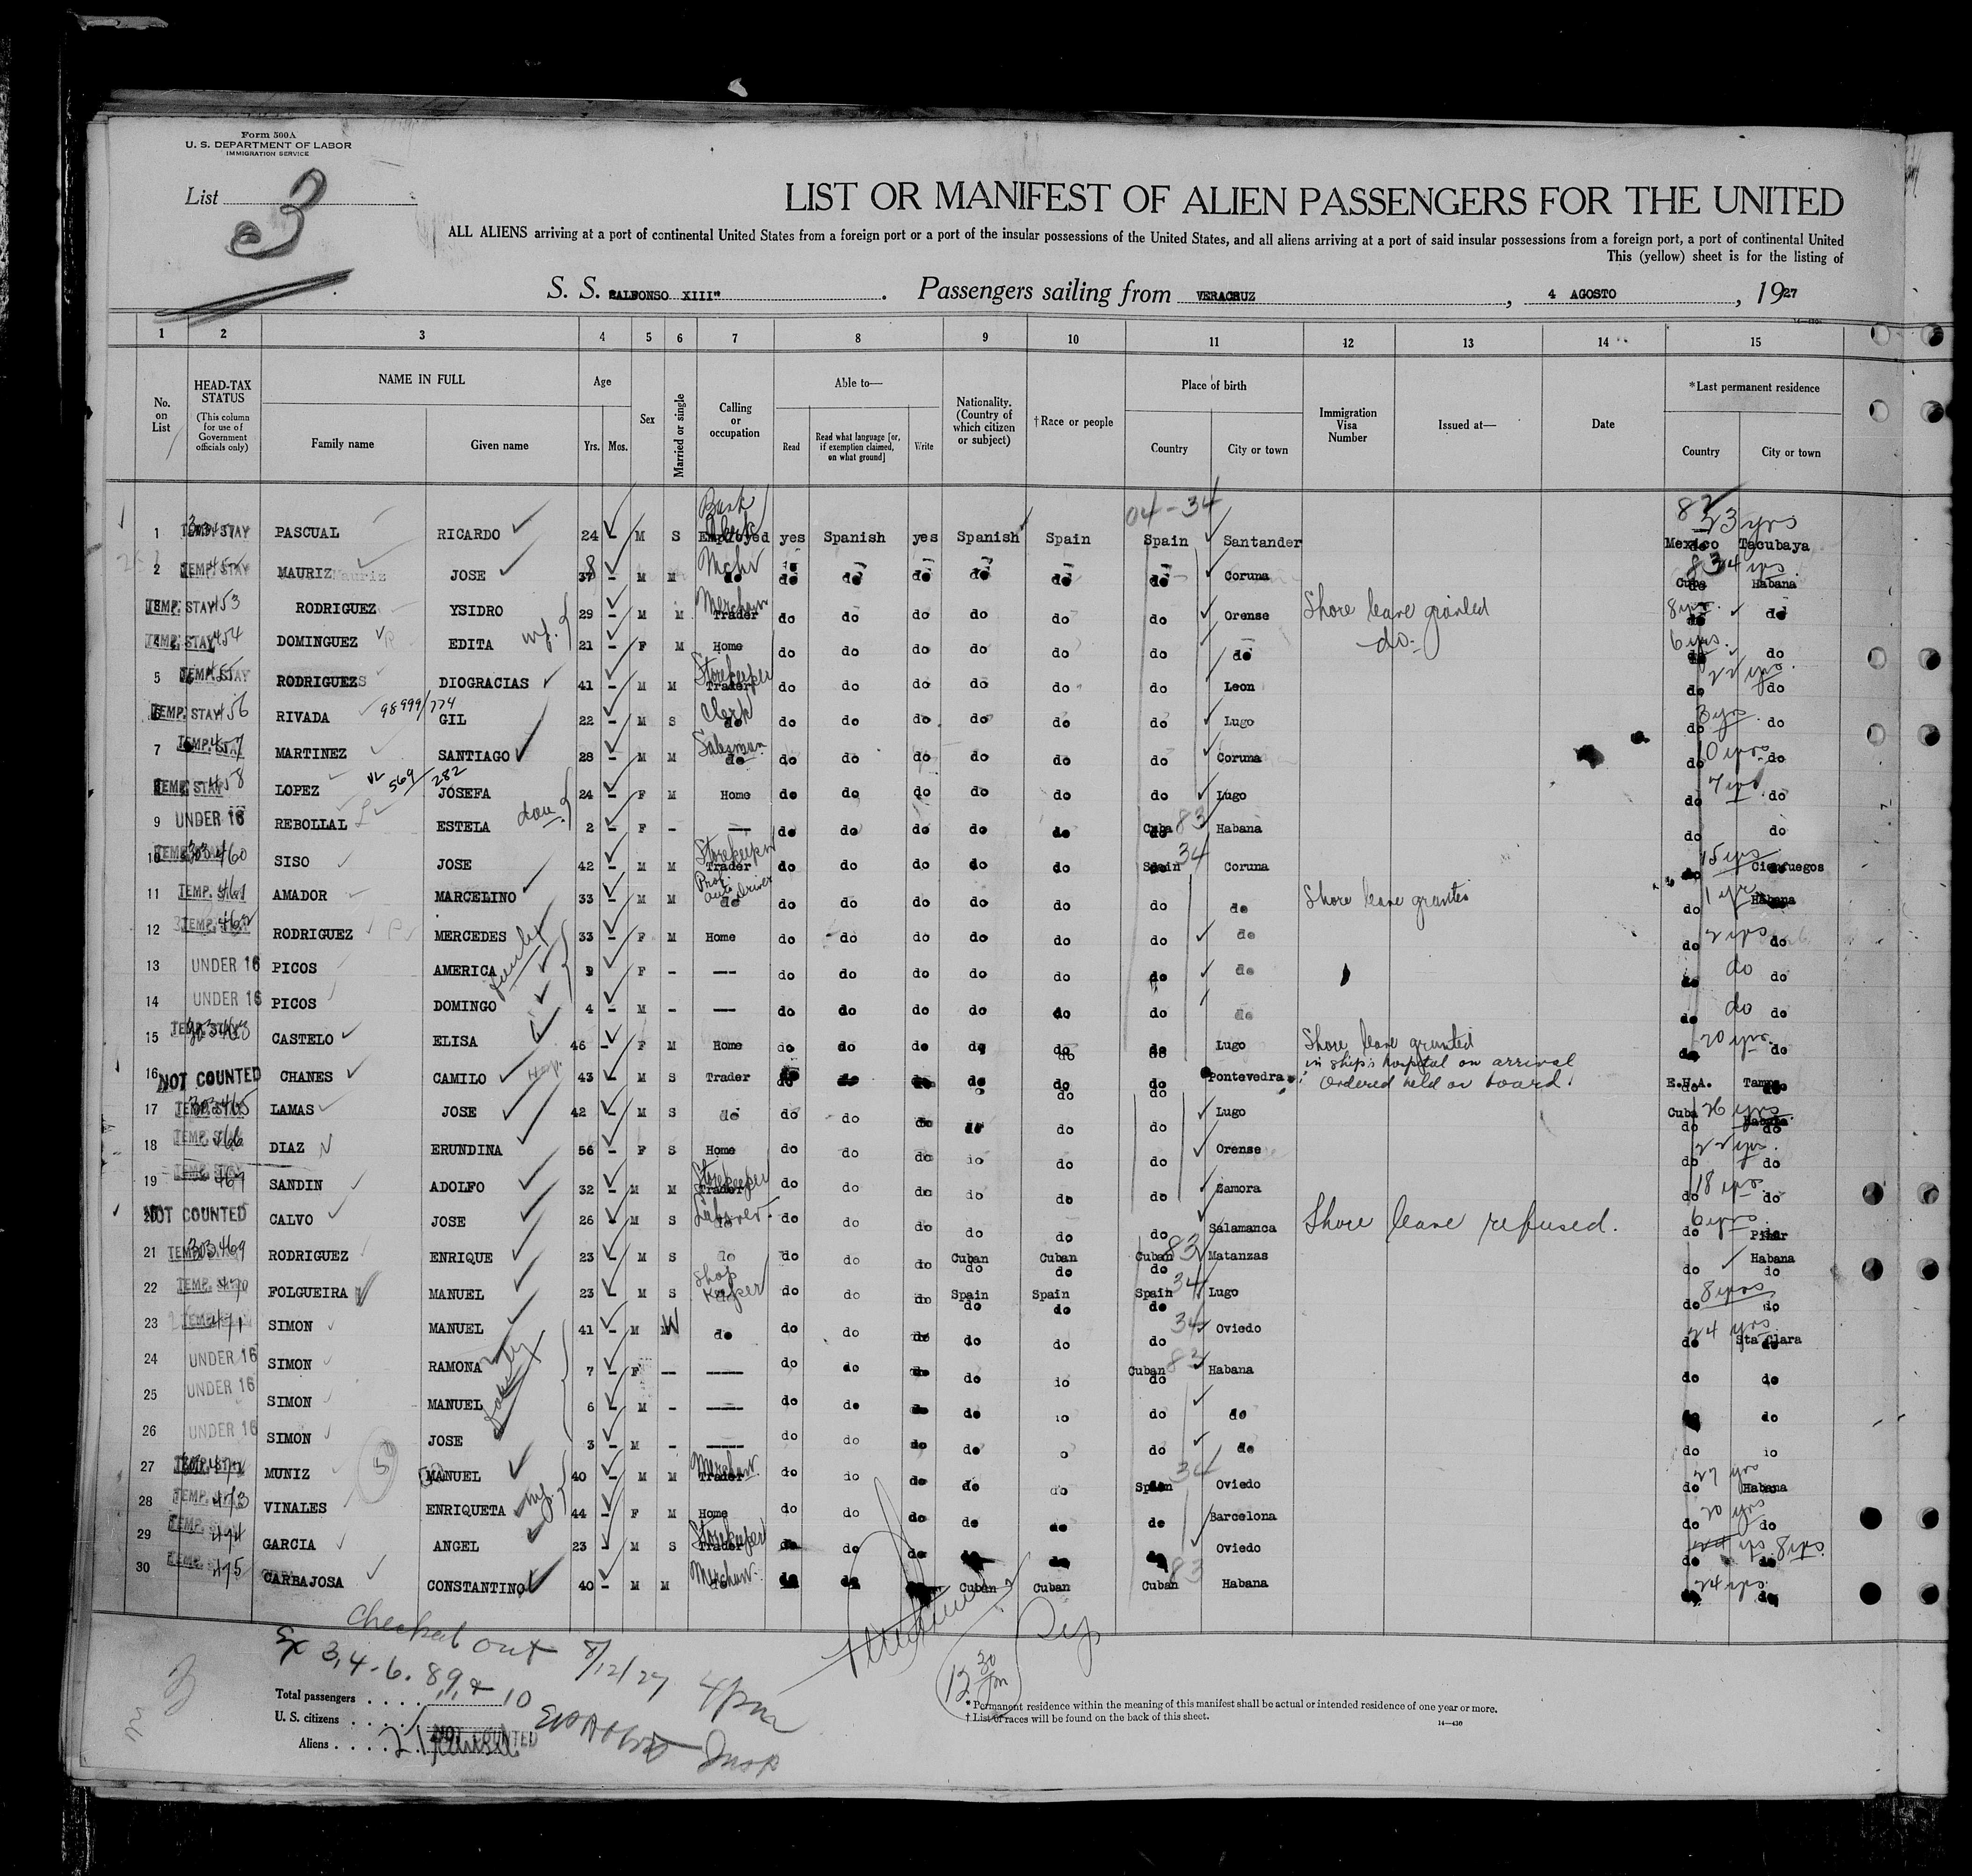 Form 500A
U. S. DEPARTMENT OF LABOR
IMMIGRATION SERVICE
List 3
LIST OR MANIFEST OF ALIEN PASSENGERS FOR THE UNITED
ALL ALIENS arriving at a port of continental United States from a foreign port or a port of the insular possessions of the United States, and all aliens arriving at a port of said insular possessions from a foreign port, a port of continental United
This (yellow) sheet is for the listing of
S. S. "ALFONSO XIII" . Passengers sailing from VERACRUZ , 4 AGOSTO , 1927
1 2 3 4 5 6 7 8 9 10 11 12 13 14 15
No. on List
HEAD-TAX STATUS (This column for use of Government officials only)
NAME IN FULL Family name Given name
Age Yrs. Mos.
Sex
Married or single
Calling or occupation
Able to— Read Read what language [or, if exemption claimed, on what ground] Write
Nationality. (Country of which citizen or subject)
†Race or people
Place of birth Country City or town
Immigration Visa Number
Issued at—
Date
*Last permanent residence Country City or town
04-34 82 23 yrs
1 TEMP. STAY PASCUAL RICARDO 24 - M S Bank Clerk Employed yes Spanish yes Spanish Spain Spain Santander Mexico Tacubaya
2 TEMP. STAY MAURIZ JOSE 37 - M M do do do do do do do Coruna Cuba Habana
3 TEMP. STAY 453 RODRIGUEZ YSIDRO 29 - M M Trader do do do do do do Orense Shore leave granted 8 yrs. do do
4 TEMP. STAY 454 DOMINGUEZ EDITA wf. 21 - F M Home do do do do do do do do- 6 yrs. do do
5 TEMP. STAY RODRIGUEZ DIOGRACIAS 41 - M M Storekeeper Trader do do do do do do Leon do do
6 TEMP. STAY 456 RIVADA 98999/774 GIL 22 - M S Clerk do do do do do do do Lugo 3 yrs. do do
7 TEMP. STAY 457 MARTINEZ SANTIAGO 28 - M M Salesman do do do do do do do Coruna 10 yrs do do
8 TEMP. STAY 458 LOPEZ 569/282 JOSEFA 24 - F M Home do do do do do do Lugo 7 yrs do do
9 UNDER 16 REBOLLAL ESTELA dau. 2 - F - — do do do do do Cuba 83 Habana do do
10 460 SISO JOSE 42 - M M Storekeeper Trader do do do do do Spain 34 Coruna 15 yrs do Cienfuegos
11 TEMP. STAY 461 AMADOR MARCELINO 33 - M M auto driver do do do do do do do do Shore leave granted 1 yr do Habana
12 462 RODRIGUEZ MERCEDES 33 - F M Home do do do do do do do 2 yrs do do
13 UNDER 16 PICOS AMERICA family 9 - F - — do do do do do do do do do do
14 UNDER 16 PICOS DOMINGO 4 - M - — do do do do do do do do do do
15 TEMP. STAY CASTELO ELISA 46 - F M Home do do do do do do Lugo Shore leave granted 20 yrs. do do
16 NOT COUNTED CHANES CAMILO Hosp. 43 - M S Trader do do do do do do Pontevedra in ship's hospital on arrival
Ordered held on board. E.U.A. Tampa
17 303465 LAMAS JOSE 42 - M S do do do do do do do Lugo Cuba 26 yrs Habana
18 TEMP. STAY 466 DIAZ ERUNDINA 56 - F S Home do do do do do do Orense 22 yrs. do do
19 TEMP. STAY SANDIN ADOLFO 32 - M M Storekeeper Trader do do do do do do Zamora 18 yrs. do do
20 NOT COUNTED CALVO JOSE 26 - M S Laborer. do do do do do do do Salamanca Shore leave refused. 6 yrs do Pinar
21 303469 RODRIGUEZ ENRIQUE 23 - M S do do do do Cuban Cuban Cuban 83 Matanzas do Habana
22 TEMP. STAY FOLGUEIRA MANUEL 23 - M S Shop Keeper do do do Spain Spain Spain 34 Lugo 8 yrs do do
23 471 SIMON MANUEL 41 - M W do do do do do do do 34 Oviedo 24 yrs do Sta Clara
24 UNDER 16 SIMON RAMONA family 7 - F — — do do do do do Cuban 83 Habana do do
25 UNDER 16 SIMON MANUEL 6 - M - — do do do do do do do do do
26 UNDER 16 SIMON JOSE 3 - M - — do do do do do do do do do
27 MUNIZ MANUEL 40 - M M Trader do do do do do Spain 34 Oviedo 27 yrs do Habana
28 TEMP. STAY 473 VINALES ENRIQUETA wf. 44 - F M Home do do do do do do Barcelona 20 yrs do do
29 TEMP. STAY 474 GARCIA ANGEL 23 - M S Storekeeper Trader do do do do do do Oviedo 8 yrs. do do
30 TEMP. 475 CARBAJOSA CONSTANTINO 40 - M M do do do Cuban Cuban Cuban 83 Habana 24 yrs. do do
Checked out 8/12/27 4pm
Ex 3, 4. 6. 8, 9, & 10
Total passengers
U. S. citizens
Aliens 21 NOT COUNTED
Insp
12 30 pm
* Permanent residence within the meaning of this manifest shall be actual or intended residence of one year or more.
† List of races will be found on the back of this sheet.
14—430